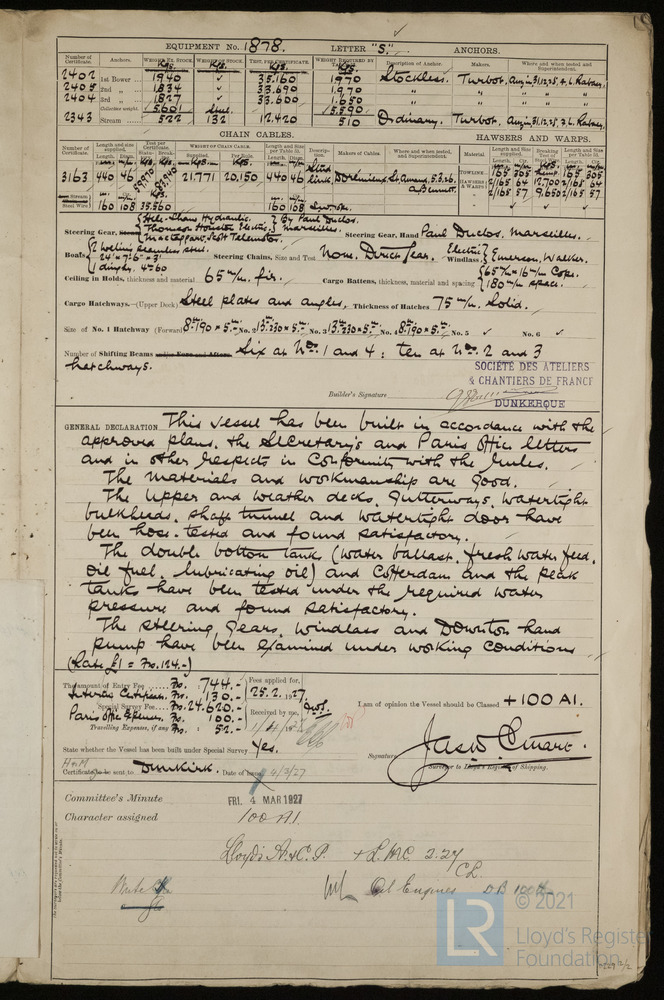 EQUIPMENT No. 1878. LETTER "S". ANCHORS.
Number of Certificate. Anchors. Weight Ex. Stock. Weight of Stock. Test, per Certificate. Weight Required by Description of Anchor. Makers. Where and when tested and Superintendent.
Kgs. Kgs. Kgs. Kgs.
2402 1st Bower 1940 ✓ 35.160 1970 Stockless. Turbot.
2405 2nd " 1834 ✓ 33.690 1.970 " "
2404 3rd " 1827 ✓ 33.600 1.650 " "
Collective weight 5601 Steel. 5.590
2343 Stream 522 132 12.420 510 Ordinary. Turbot.
CHAIN CABLES. HAWSERS AND WARPS.
Number of Certificate. Length and size supplied. Test per Certificate. Weight of Chain Cable. Length and size per Table 53. Description. Makers of Cables. Where and when tested, and Superintendent. Material. Length and Size supplied. Breaking Test of Length and size per Table 53.
3163 440 46 59.970 83.940 21.771 20.150 440 46 Stud link. St. Amand. 5.3.26. Bennett.
TOWLINE 165 305 165 305
HAWSERS & WARPS 2/165 64 12.700 2/165 64
2/165 57 9.650 2/165 57
Stream Steel Wire 160 108 35.560 160 108
Steering Gear, Steam Hele-Shaw Hydraulic. Thomson Houston Electric. Mactaggart, Scott Telemotor. By Paul Duclos. Marseilles. Steering Gear, Hand Paul Duclos. Marseilles.
Boats 2 Seamless steel. 24' × 7'.6" × 3' 1 dinghy. Steering Chains, Size and Test None. Direct Gear. Windlass Electric Emerson, Walker.
Ceiling in Holds, thickness and material 65 m/m. fir. Cargo Battens, thickness, material and spacing 65 m/m × 16 m/m 180 m/m space.
Cargo Hatchways.—(Upper Deck) Steel plates and angles, Thickness of Hatches 75 m/m. Solid.
Size of No. 1 Hatchway (Forward) 8m.190 × 5.m No. 2 13m.230 × 5.m No. 3 13m.230 × 5.m No. 4 8m.190 × 5.m No. 5 ✓ No. 6 ✓
Number of Shifting Beams and/or Fore and Afters Six at Nos. 1 and 4; ten at Nos. 2 and 3
hatchways.
SOCIÉTÉ DES ATELIERS
& CHANTIERS DE FRANCE
Builder's Signature
DUNKERQUE
GENERAL DECLARATION This vessel has been built in accordance with the
approved plans, the Secretary's and Paris Office letters
and in other respects in conformity with the rules.
The materials and workmanship are good.
The upper and weather decks, gutterways, watertight
bulkheads, shaft tunnel and watertight door have
been hose-tested and found satisfactory.
The double bottom tanks (water ballast, fresh water feed,
oil fuel, lubricating oil) and cofferdam and the peak
tanks have been tested under the required water
pressure and found satisfactory.
The steering gears, windlass and Downton hand
pump have been examined under working conditions
(Rate £1 = Frs. 124.-)
The amount of Entry Fee Frs. 744.- Fees applied for,
Interim Certificate. Frs. 130.- 25.2.1927.
Special Survey Fee Frs. 24.620.- Received by me,
Paris Office Expenses. Frs. 100.-
Travelling Expenses, if any Frs. 52.-
I am of opinion the Vessel should be Classed +100 A1.
State whether the Vessel has been built under Special Survey Yes.
Signature
Surveyor to Lloyd's Register of Shipping.
Certificate to be sent to Dunkirk. Date of issue 4/3/27
Committee's Minute FRI. 4 MAR 1927
Character assigned 100 A1.
Lloyd's A.&C.P. + LMC. 2.27
CL.
Oil Engines DB
LR
© 2021
Lloyd's Register
Foundation